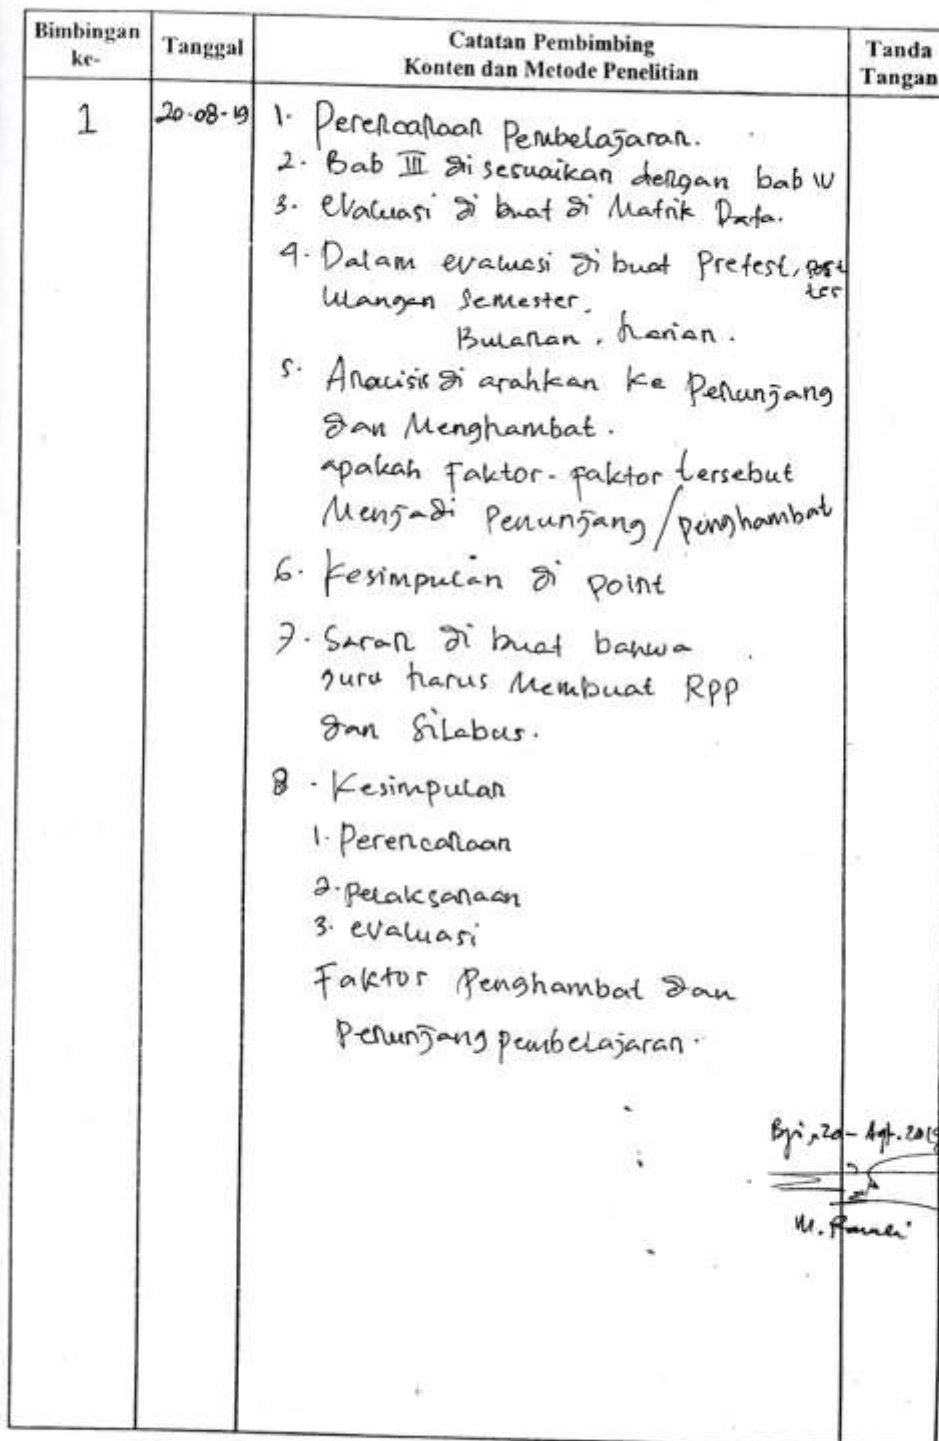 Bimbingan ke-
Tanggal
Catatan Pembimbing
Konten dan Metode Penelitian
Tanda Tangan
1
20-08-19
1. Perencanaan Pembelajaran.
2. Bab III di sesuaikan dengan bab IV
3. evaluasi di buat di Matrik Data.
4. Dalam evaluasi di buat Pretest, post tes
Ulangan Semester,
Bulanan, harian.
5. Analisis di arahkan ke Penunjang
dan Menghambat.
apakah Faktor-faktor tersebut
Menjadi Penunjang/penghambat
6. Kesimpulan di point
7. Saran di buat bahwa
guru harus Membuat RPP
dan Silabus.
8. Kesimpulan
1. Perencanaan
2. Pelaksanaan
3. evaluasi
Faktor Penghambat dan
Penunjang pembelajaran.
20-Agt.2019
M.